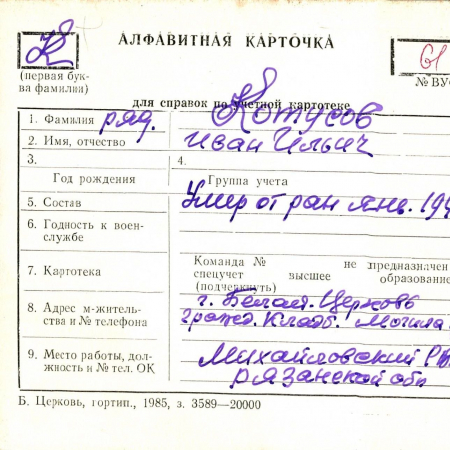 К
АЛФАВИТНАЯ КАРТОЧКА
61
(первая бук-
ва фамилии)
№ ВУ
для справок по учетной картотеке
1. Фамилия ряд. Котусов
2. Имя, отчество Иван Ильич
3. 4.
Год рождения Группа учета
5. Состав Умер от ран янв. 194
6. Годность к воен-
службе
7. Картотека
Команда № не предназначен
спецучет высшее образование
(подчеркнуть)
8. Адрес м-житель-
ства и № телефона
г. Белая Церковь
гражд. Кладб. Могила
9. Место работы, дол-
жность и № тел. ОК
Михайловский РВ
Рязанской обл
Б. Церковь, гортип., 1985, з. 3589—20000